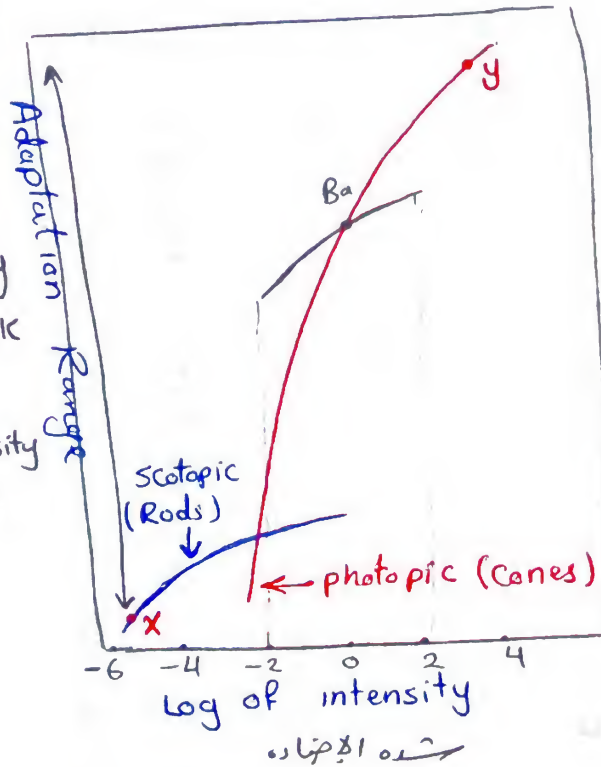 Adaptation Range
y
K
sity
y
Ba
Scotopic
(Rods)
photopic (Cones)
x
-6 -4 -2 0 2 4
Log of intensity
شده الإضاءه